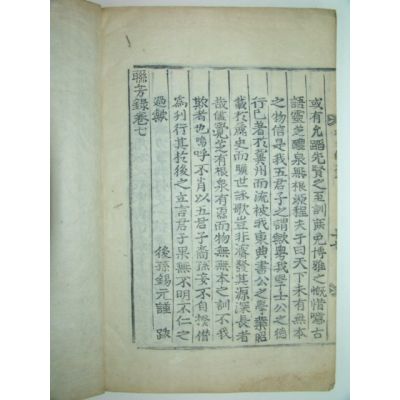 或有允蹈先賢之至訓而免博雅之慨惜噫古
語靈芝醴泉無根源程夫子曰天下未有無本
之物信是我五君子之謂歟粤我學士公之德
行已著於冀州而流被我東典書公之學業昭
載於麗史而曠世詠歌豈非濬發其源深長者
哉儘覺芝有根泉有源而物無無本之訓不我
欺者也嗚呼不肖以五君子裔孫妄不自揆僭
爲刊行其於後之立言君子果無不明不仁之
過歟 後孫錫元謹 跋
聯芳錄卷七